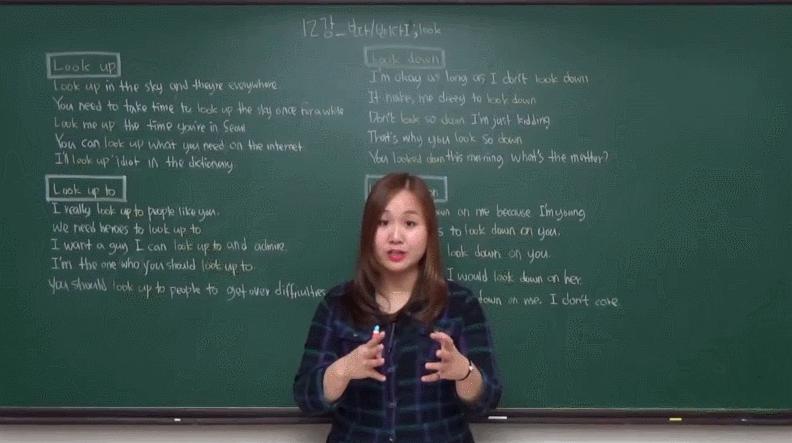 12강_보다/보이다1; look
Look up
Look up in the sky and they're everywhere
You need to take time to look up the sky once for a while
Look me up the time you're in Seoul
You can look up what you need on the internet
I'll look up 'idiot' in the dictionary
Look up to
I really look up to people like you.
We need heroes to look up to
I want a guy I can look up to and admire.
I'm the one who you should look up to.
You should look up to people to get over difficulties
Look down
I'm okay as long as I don't look down
It makes me dizzy to look down
Don't look so down I'm just kidding
That's why you look so down
You looked down this morning, what's the matter?
on me because I'm young
to look down on you.
look down on you.
I would look down on her.
down on me. I don't care.